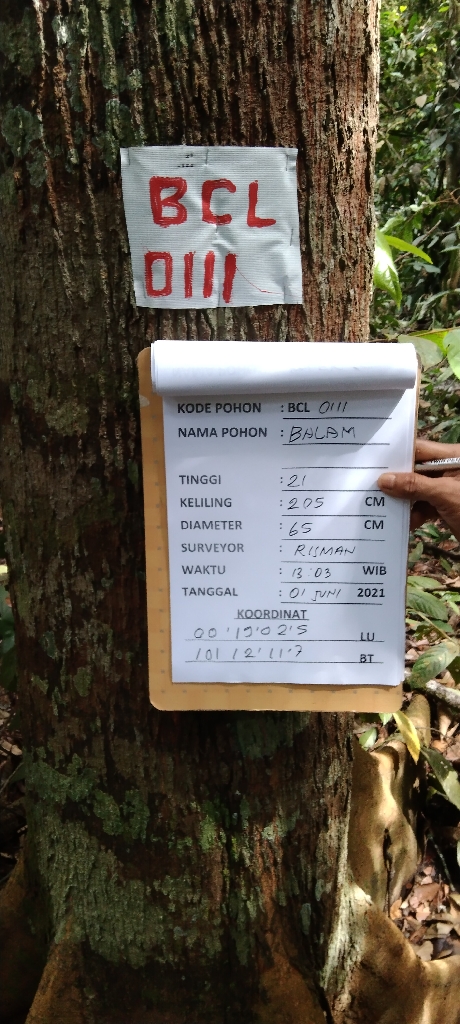 BCL
0111
KODE POHON : BCL 0111
NAMA POHON : BALAM
TINGGI : 21
KELILING : 205 CM
DIAMETER : 65 CM
SURVEYOR : RISMAN
WAKTU : 13:03 WIB
TANGGAL : 01 JUNI 2021
KOORDINAT
00'19'02'5 LU
101'12'11'7 BT